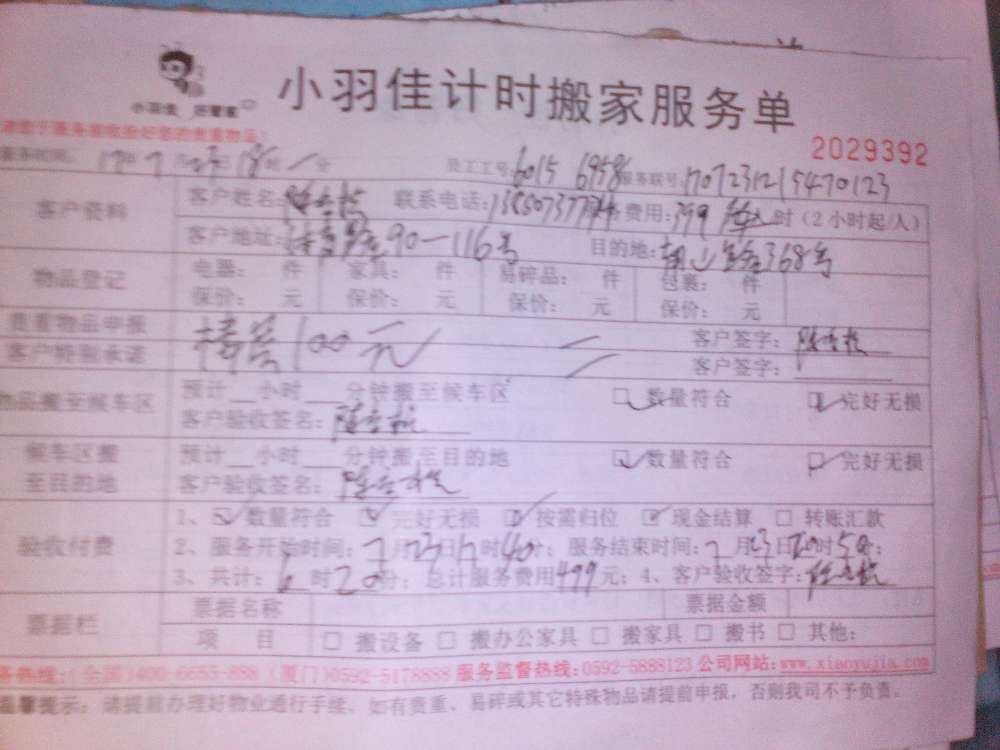 小羽佳 好管家
小羽佳计时搬家服务单
2029392
服务时间: 17年7月23日18时一分 员工工号:6015 6958 服务联号:1707231215470123
客户资料 客户姓名: 联系电话: 费用:399 时(2小时起/人)
客户地址: 90一116号 目的地: 368号
物品登记 电器: 件 家具: 件 易碎品: 件 包裹: 件
保价: 元 保价: 元 保价: 元 保价: 元
贵重物品申报 楼层100元 客户签字:
客户特别承诺 客户签字:
物品搬至候车区 预计__小时___分钟搬至候车区 数量符合 完好无损
客户验收签名:
候车区搬至目的地 预计__小时___分钟搬至目的地 数量符合 完好无损
客户验收签名:
验收付费 1、数量符合 完好无损 按需归位 现金结算 转账汇款
2、服务开始时间:7月23日 时40分; 服务结束时间:7月23日20时50分;
3、共计:6时20分; 总计服务费用499元; 4、客户验收签字:
票据栏 票据名称 票据金额
项 目 □ 搬设备 □ 搬办公家具 □ 搬家具 □ 搬书 □ 其他:
务热线:(全国)400-6655-888 (厦门)0592-5178888 服务监督热线:0592-5888123 公司网站:www.xiaoyujia.com
温馨提示: 请提前办理好物业通行手续。如有贵重、易碎或其它特殊物品请提前申报,否则我司不予负责。